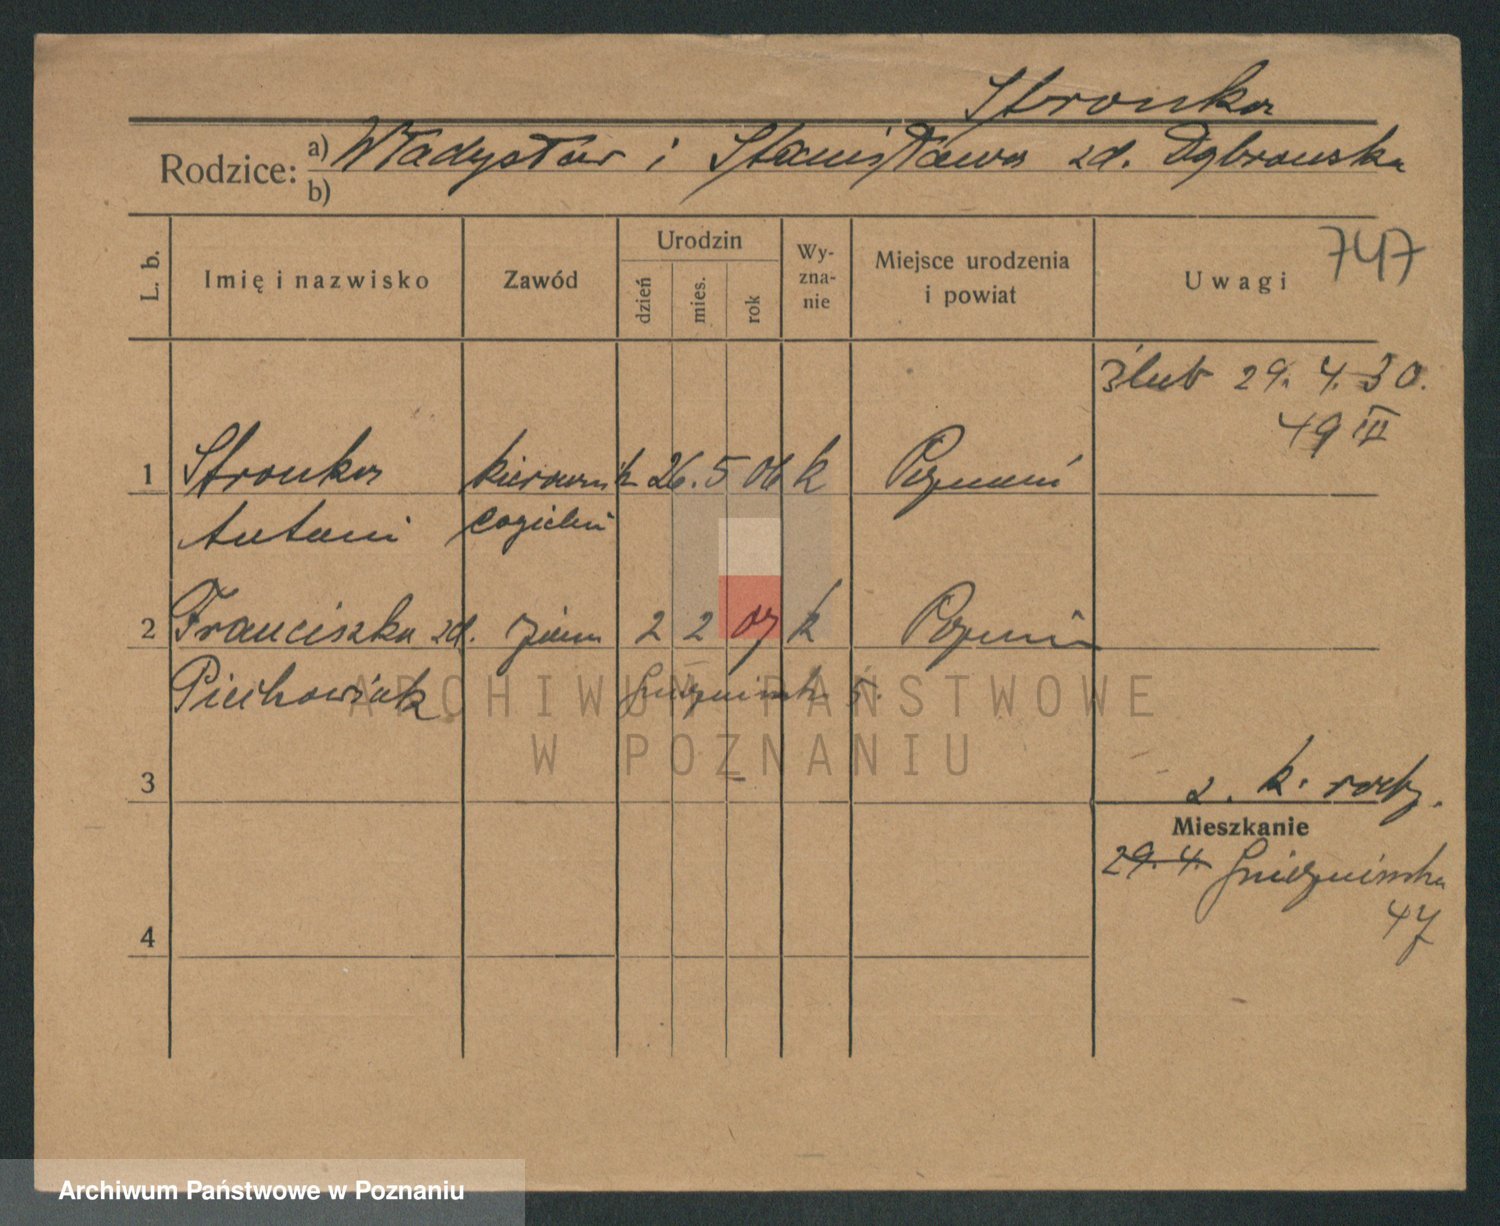 Stronka
Rodzice: a) Władysław i Stanisława zd. Dąbrowska
b)
L. b.
Imię i nazwisko
Zawód
Urodzin
dzień
mies.
rok
Wy-
zna-
nie
Miejsce urodzenia
i powiat
Uwagi
747
ślub 29. 4. 30.
49 III
1 Stronka kierownik 26. 5 06 k Poznań
Antoni cegielni
2 Franciszka zd. żona 2 2 07 k Poznań
Piechowiak Gnieźnieńska 5.
ARCHIWUM PAŃSTWOWE
W POZNANIU
3
2. k.
Mieszkanie
29. 4. Gnieźnieńska
47
4
Archiwum Państwowe w Poznaniu